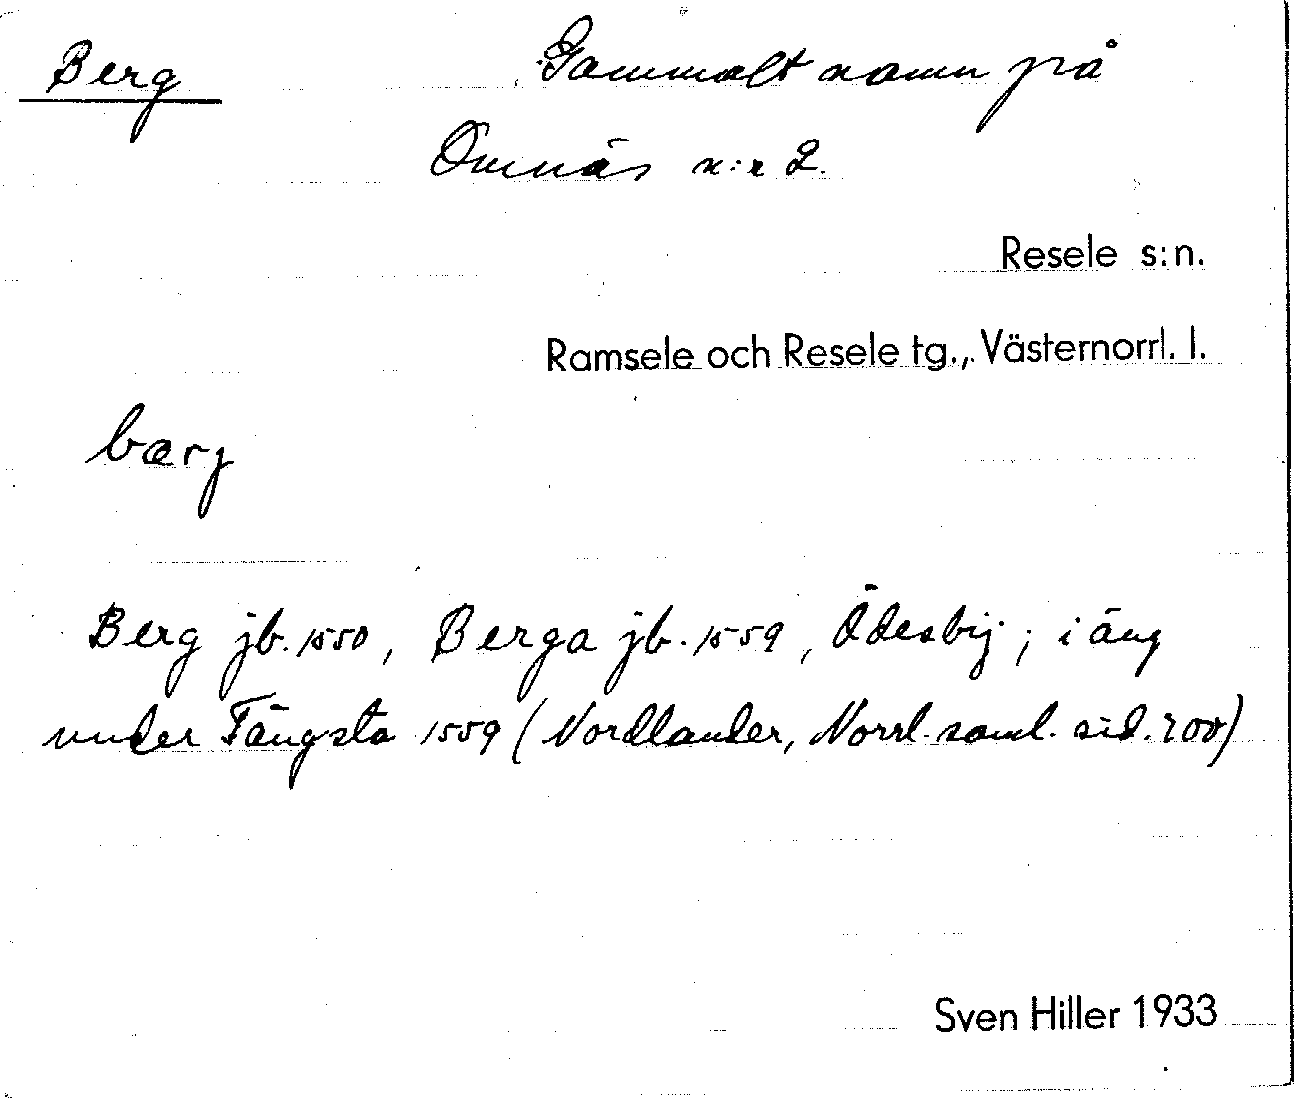 Berg Gammalt namn på
Omnäs n:r 2.
Resele s:n.
Ramsele och Resele tg., Västernorrl. l.
bærj
Berg jb. 1550, Berga jb. 1559, Ödesbij; i äng
under Tängsta 1559 (Nordlander, Norrl. saml. sid. 200)
Sven Hiller 1933